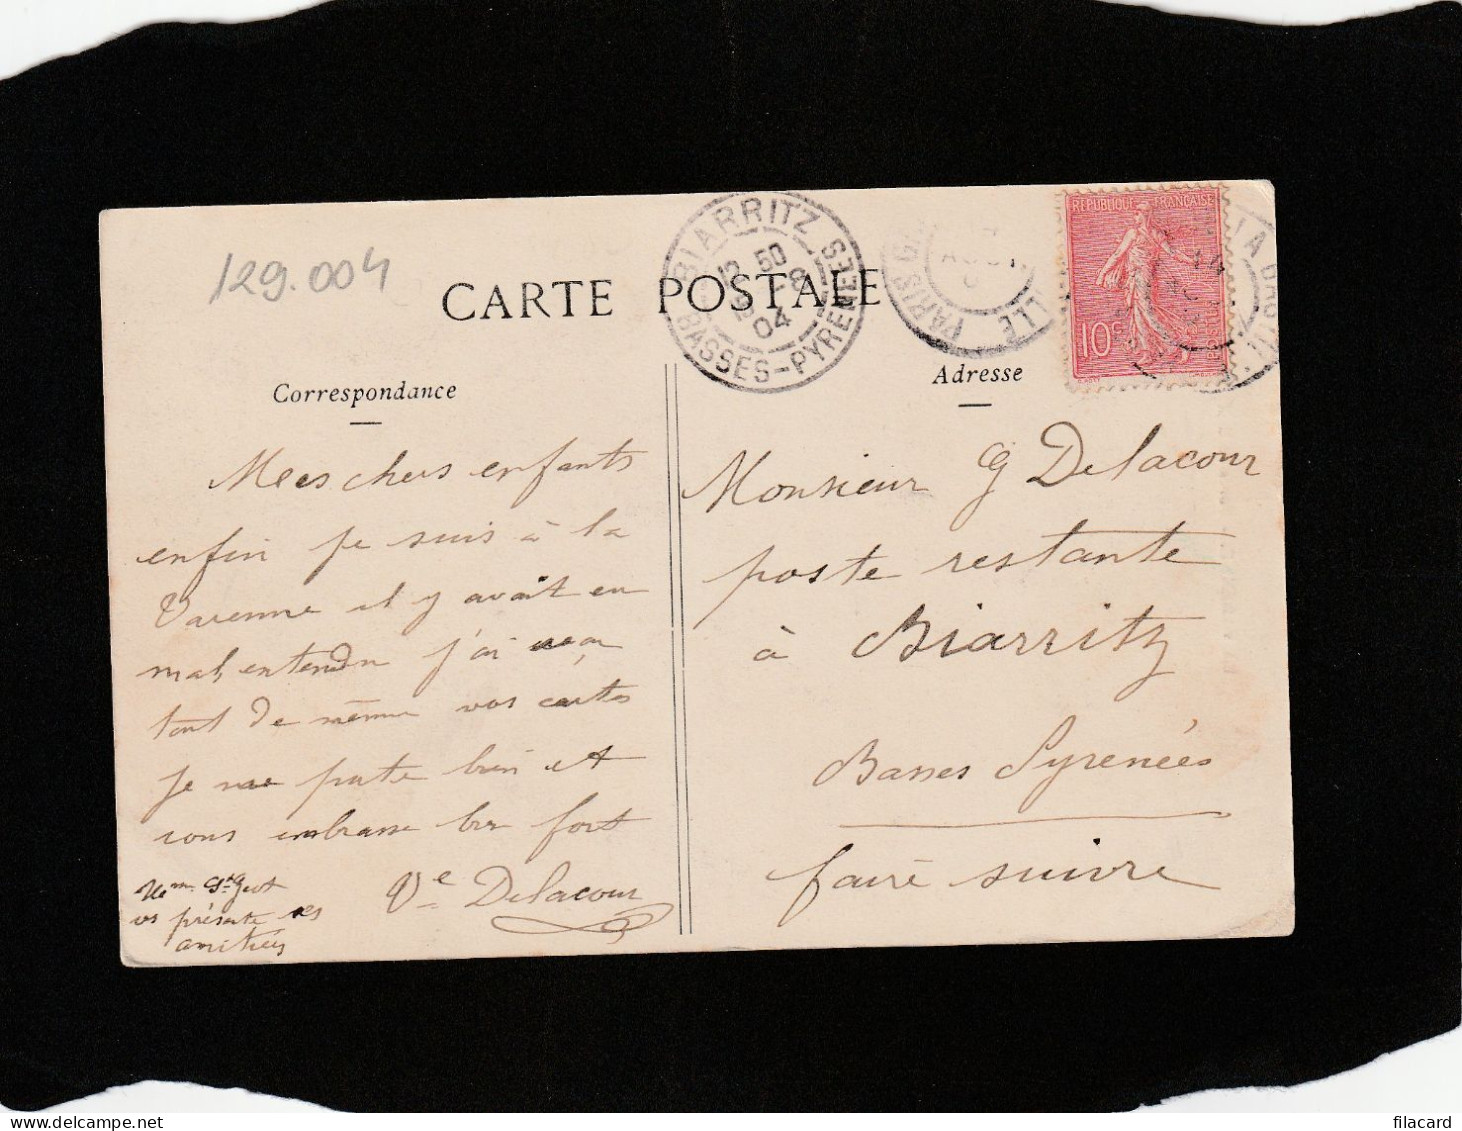 129.004
CARTE POSTALE
BIARRITZ
12 50
-8
04
BASSES-PYRENEES
PARIS
14
AOUT
REPUBLIQUE FRANÇAISE
10c
Correspondance
Mes chers enfants
enfin je suis à la
Varenne il y avait eu
mal entendu j'ai reçu
tout de même vos cartes
je me porte bien et
vous embrasse bien fort
Ve Delacour
vos présente ses
amitiés
Adresse
Monsieur G Delacour
poste restante
à Biarritz
Basses Pyrenées
faire suivre
filacard.com